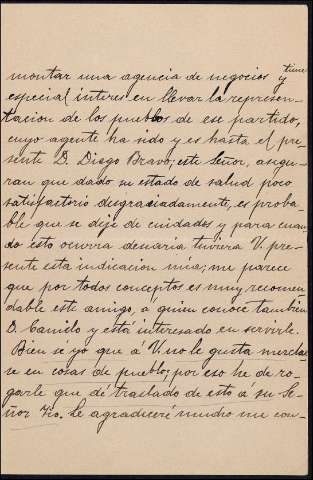 montar una agencia de negocios y tiene
especial interes en llevar la represen-
tacion de los pueblos de ese partido,
cuyo agente ha sido y es hasta el pre-
sente D. Diego Bravo; este Señor, asegu-
ran que dado su estado de salud poco
satisfactorio desgraciadamente, es proba-
ble que se deje de cuidados y para cuan-
do esto ocurra desearia tuviera V. pre-
sente esta indicacion mia; me parece
que por todos conceptos es muy recomen-
dable este amigo, á quien conoce tambien
D. Camilo y está interesado en servirle.
Bien sé yo que á V. no le gusta mezclar-
se en cosas de pueblo; por eso he de ro-
garle que dé traslado de esto á su Se-
ñor Le agradeceré mucho me con-